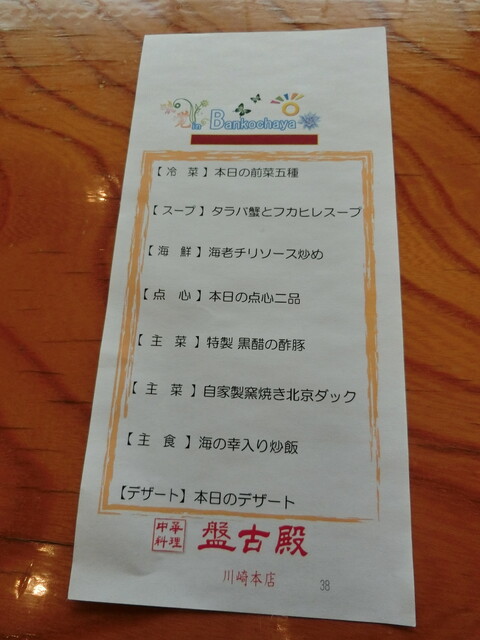 in Bankochaya
【冷 菜】本日の前菜五種
【スープ】タラバ蟹とフカヒレスープ
【海 鮮】海老チリソース炒め
【点 心】本日の点心二品
【主 菜】特製 黒醋の酢豚
【主 菜】自家製窯焼き北京ダック
【主 食】海の幸入り炒飯
【デザート】本日のデザート
中華料理 盤古殿
川崎本店
38